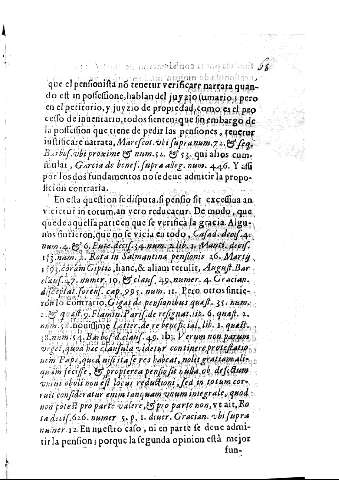 que el pensionista nõ tenetur verificare narrata quan-
do est in possessione, hablan del juyzio sumario; pero
en el petitorio, y juyzio de propiedad, como es el pro
cesso de inuentario, todos sienten: que sin embargo de
la possession que tiene de pedir las pensiones, tenetur
iustificare narrata, Marescot. vbi supra num. 72. & seq;
Barbos. vbi proxime & num. 52. & 53. qui alios cum-
simulat, Garcia de benef. supra alleg. num. 446. Y assi
por los dos fundamentos no se deue admitir la propo-
sicion contraria.
En esta question se disputa, si penso sit excessiua an
vicietur in totum, an vero reducatur. De modo, que
quede aquella parte en que se verifica la gracia. Algu-
nos sintieron, que no se vicia en todo, Casad. decis. 4.
num. 4. & 6. Put. decis. 34. num. 2. lib. 1. Mant. decis.
153. num. 2. Rota in Salmantina pensionis 26. Martij
1593. coram Gipsio, hanc, & aliam tetulit, August. Bar
claus. 47. numer. 19. & claus. 49. numer. 4. Gracian.
discept. forens. cap. 995. num. 11. Pero otros sintie-
ron lo contrario, Gigas de pensionibus quæst. 35. num.
2. & quæst. 9. Flamin. Paris. de resignat. lib. 6. quæst. 2.
num. 58. nouissime Lotter. de re benefitial. lib. 1. quæst.
38. num. 54. Barbos. d. claus. 49. ibi: Verum non parum
vrget, quod hæc clausula videtur continere protestatio-
nem Papæ, quod nisi ita se res habeat, nolit gratiam ali-
quam fecisse, & propterea pensio sit nulla, ob defectum
vnius obuli non est locus reductioni, sed in totum cor-
ruit consideratur enim tanquam vnum integrale, quod
non potest pro parte valere, & pro parte non, vt ait, Ro
ta decis. 626. numer. 5. p. 1. diuer. Gracian. vbi supra
numer. 12. En nuestro caso, ni en parte se deue admi-
tir la pension; porque la segunda opinion està mejor
fun-